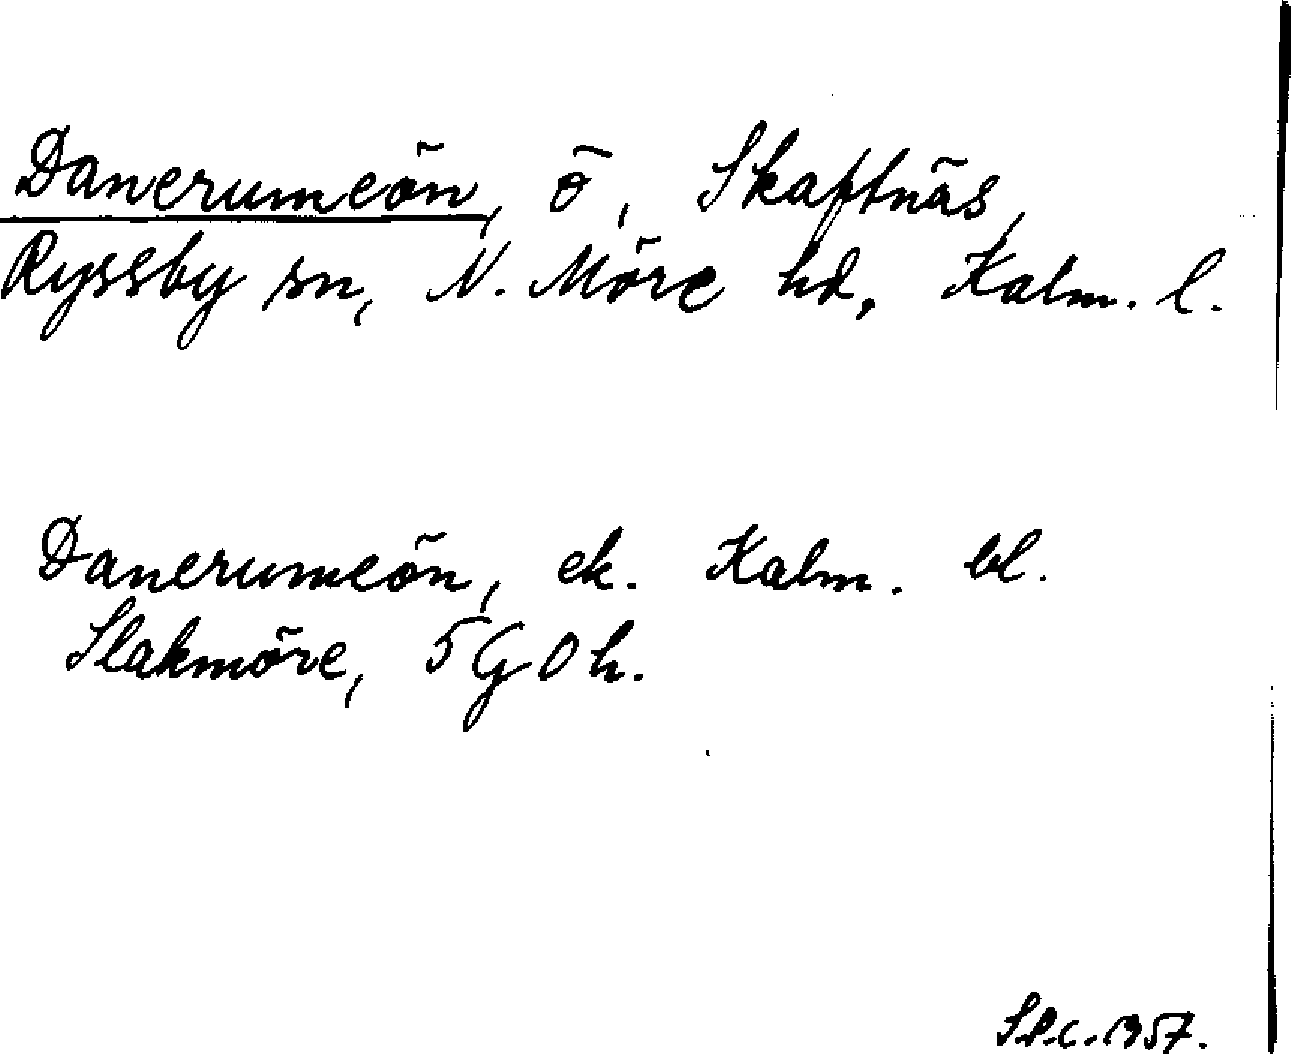 Danerumeön, ö, Skaftnäs,
Ryssby sn, N. Möre hd, Kalm. l.
Danerumeön, ek. Kalm. bl.
Slakmöre, 5 G O h.
S.P.C. 1957.